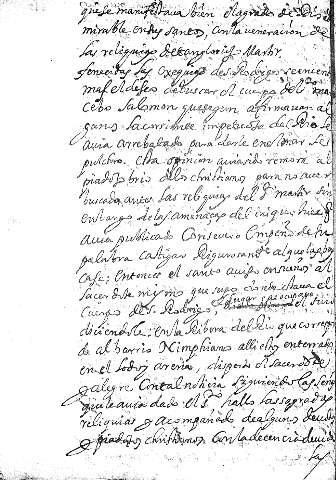 que se manifestava bien el agrado de Dios
mirable en sus santos, con la veneracion de
las reliquias de tan glorioso Martir.
fenecidas las exequias de S. Rodrigo se encen
mas el deseo de buscar el cuerpo del
Salomon que segun afirmavan al
gunos la corriente impetuosa del Rio se
avia arrebatado para darle en el mar se
pulcro. Esta opinion avia sido remora al
piadoso brio de los christianos para no aver
buscado antes las reliquias del martir
embargo de las amenaças del iniquo Juez
avia publicado
palabra castigar rigurosamente al que las bus
case; entonces el santo aviso en sueños al
sacerdote mismo que supo donde estava el
cuerpo de S. Rodrigo, el lugar
diciendole; en la Ribera del Rio que corresp
de al barrio Nimphiano alli estoy enterrado
en el lodo y arena, desperto el sacerdote
y alegre. Con tal noticia siguiendo las señas
que le avia dado el S.to hallo las sagradas
reliquias y acompañado de algunos devotos
y piadosos christianos con la decencia devida